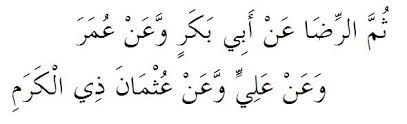 ثُمَّ الرِّضَا عَنْ أَبِي بَكَرٍ وَّعَنْ عُمَرَ
وَعَنْ عَلِيٍّ وَّعَنْ عُثْمَانَ ذِي الْكَرَمِ